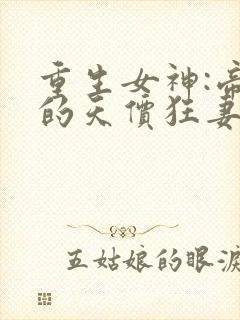 重生女神:帝
的天價狂妻
五姑娘的眼淚